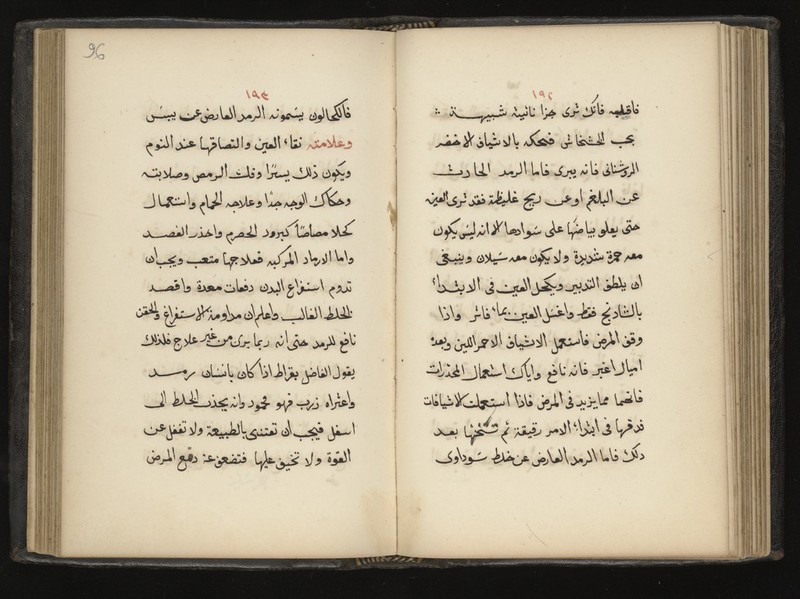 ١٩٢
فاقلبه فانك ترى جزا ناتية شبيهة
بحب الخشخاش فتحكه بالاشياف الاخضر
فانه يبرى فاما الرمد الحادث
عن البلغم او عن ريح غليظة فقد ترى العين
حتى يعلو بياضها على سوادها الا انه ليس يكون
معه حمرة شديدة ولا يكون معه سيلان وينبغى
ان يلطف التدبير ويكحل العين فى الابتداء
بالشاذنج فقط واغسل العين بماء فاتر واذا
وقف المرض فاستعمل الاشياف الاحمر اللين وبعده
اميال اغبر فانه نافع واياك استعمال المخدرات
فانها مما يزيد فى المرض فاذا استعملت الاشيافات
فدفها فى ابتداء الامر رقيقة ثم تثخنها بعد
ذلك فاما الرمد العارض عن خلط سوداوى
96
١٩٣
فالكحالون يسمونه الرمد العارض عن يبس
وعلامته نقاء العين والتصاقها عند النوم
ويكون ذلك يسيرا وقلة الرمص وصلابته
وحكاك الوجه جدا وعلاجه الحمام واستعمال
كحلا مصاصا كبرود الحصرم واحذر الفصد
واما الارماد المركبه فعلاجها متعب ويجب ان
تدوم استفراغ البدن دفعات معدة واقصد
الخلط الغالب واعلم ان مداومة الاستفراغ والحقن
نافع للرمد حتى انه ربما برئ من غير علاج فلذلك
يقول الفاضل بقراط اذا كان بانسان رمد
واعتراه ذرب فهو محمود وانه يجذب الخلط الى
اسفل فيجب ان تعتنى بالطبيعة ولا تغفل عن
القوة ولا تخيف عليها فتضعف عن دفع المرض